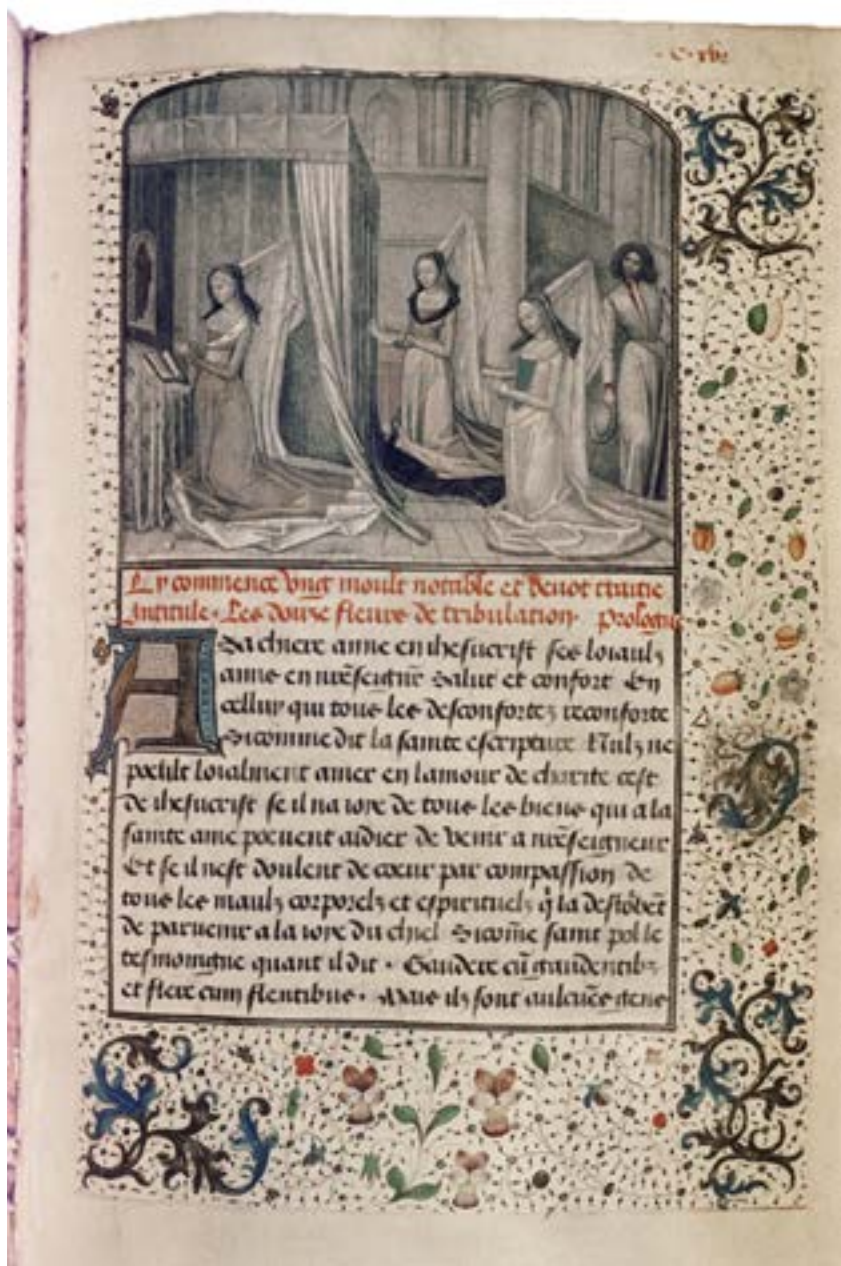 Cy commence vng moult notable et deuot traitie
Intitule. Les douze fleurs de tribulation. Prologue
A Sa chiere amie en ihesucrist ses loiaulz
amis en nr̃eseigur̃ Salut et confort En
celluy qui tous les desconfortez reconforte
Sicomme dit la sainte escripture Nulz ne
poelut loialment amer en lamour de charite cest
de ihesucrist se il na ioye de tous les biens qui a la
sainte ame poeuent aidier de venir a nr̃eseigneur
Et se il nest doulent de coeur par compassion de
tous les maulz corporelz et espirituelz q̃ la destõbent
de paruenir a la ioye du ciel Sicom̃e saint pol le
tesmoingne quant il dit. Gaudere cũ gaudentibz
et flere cum flentibus. Mais ilz sont aulcũes gens